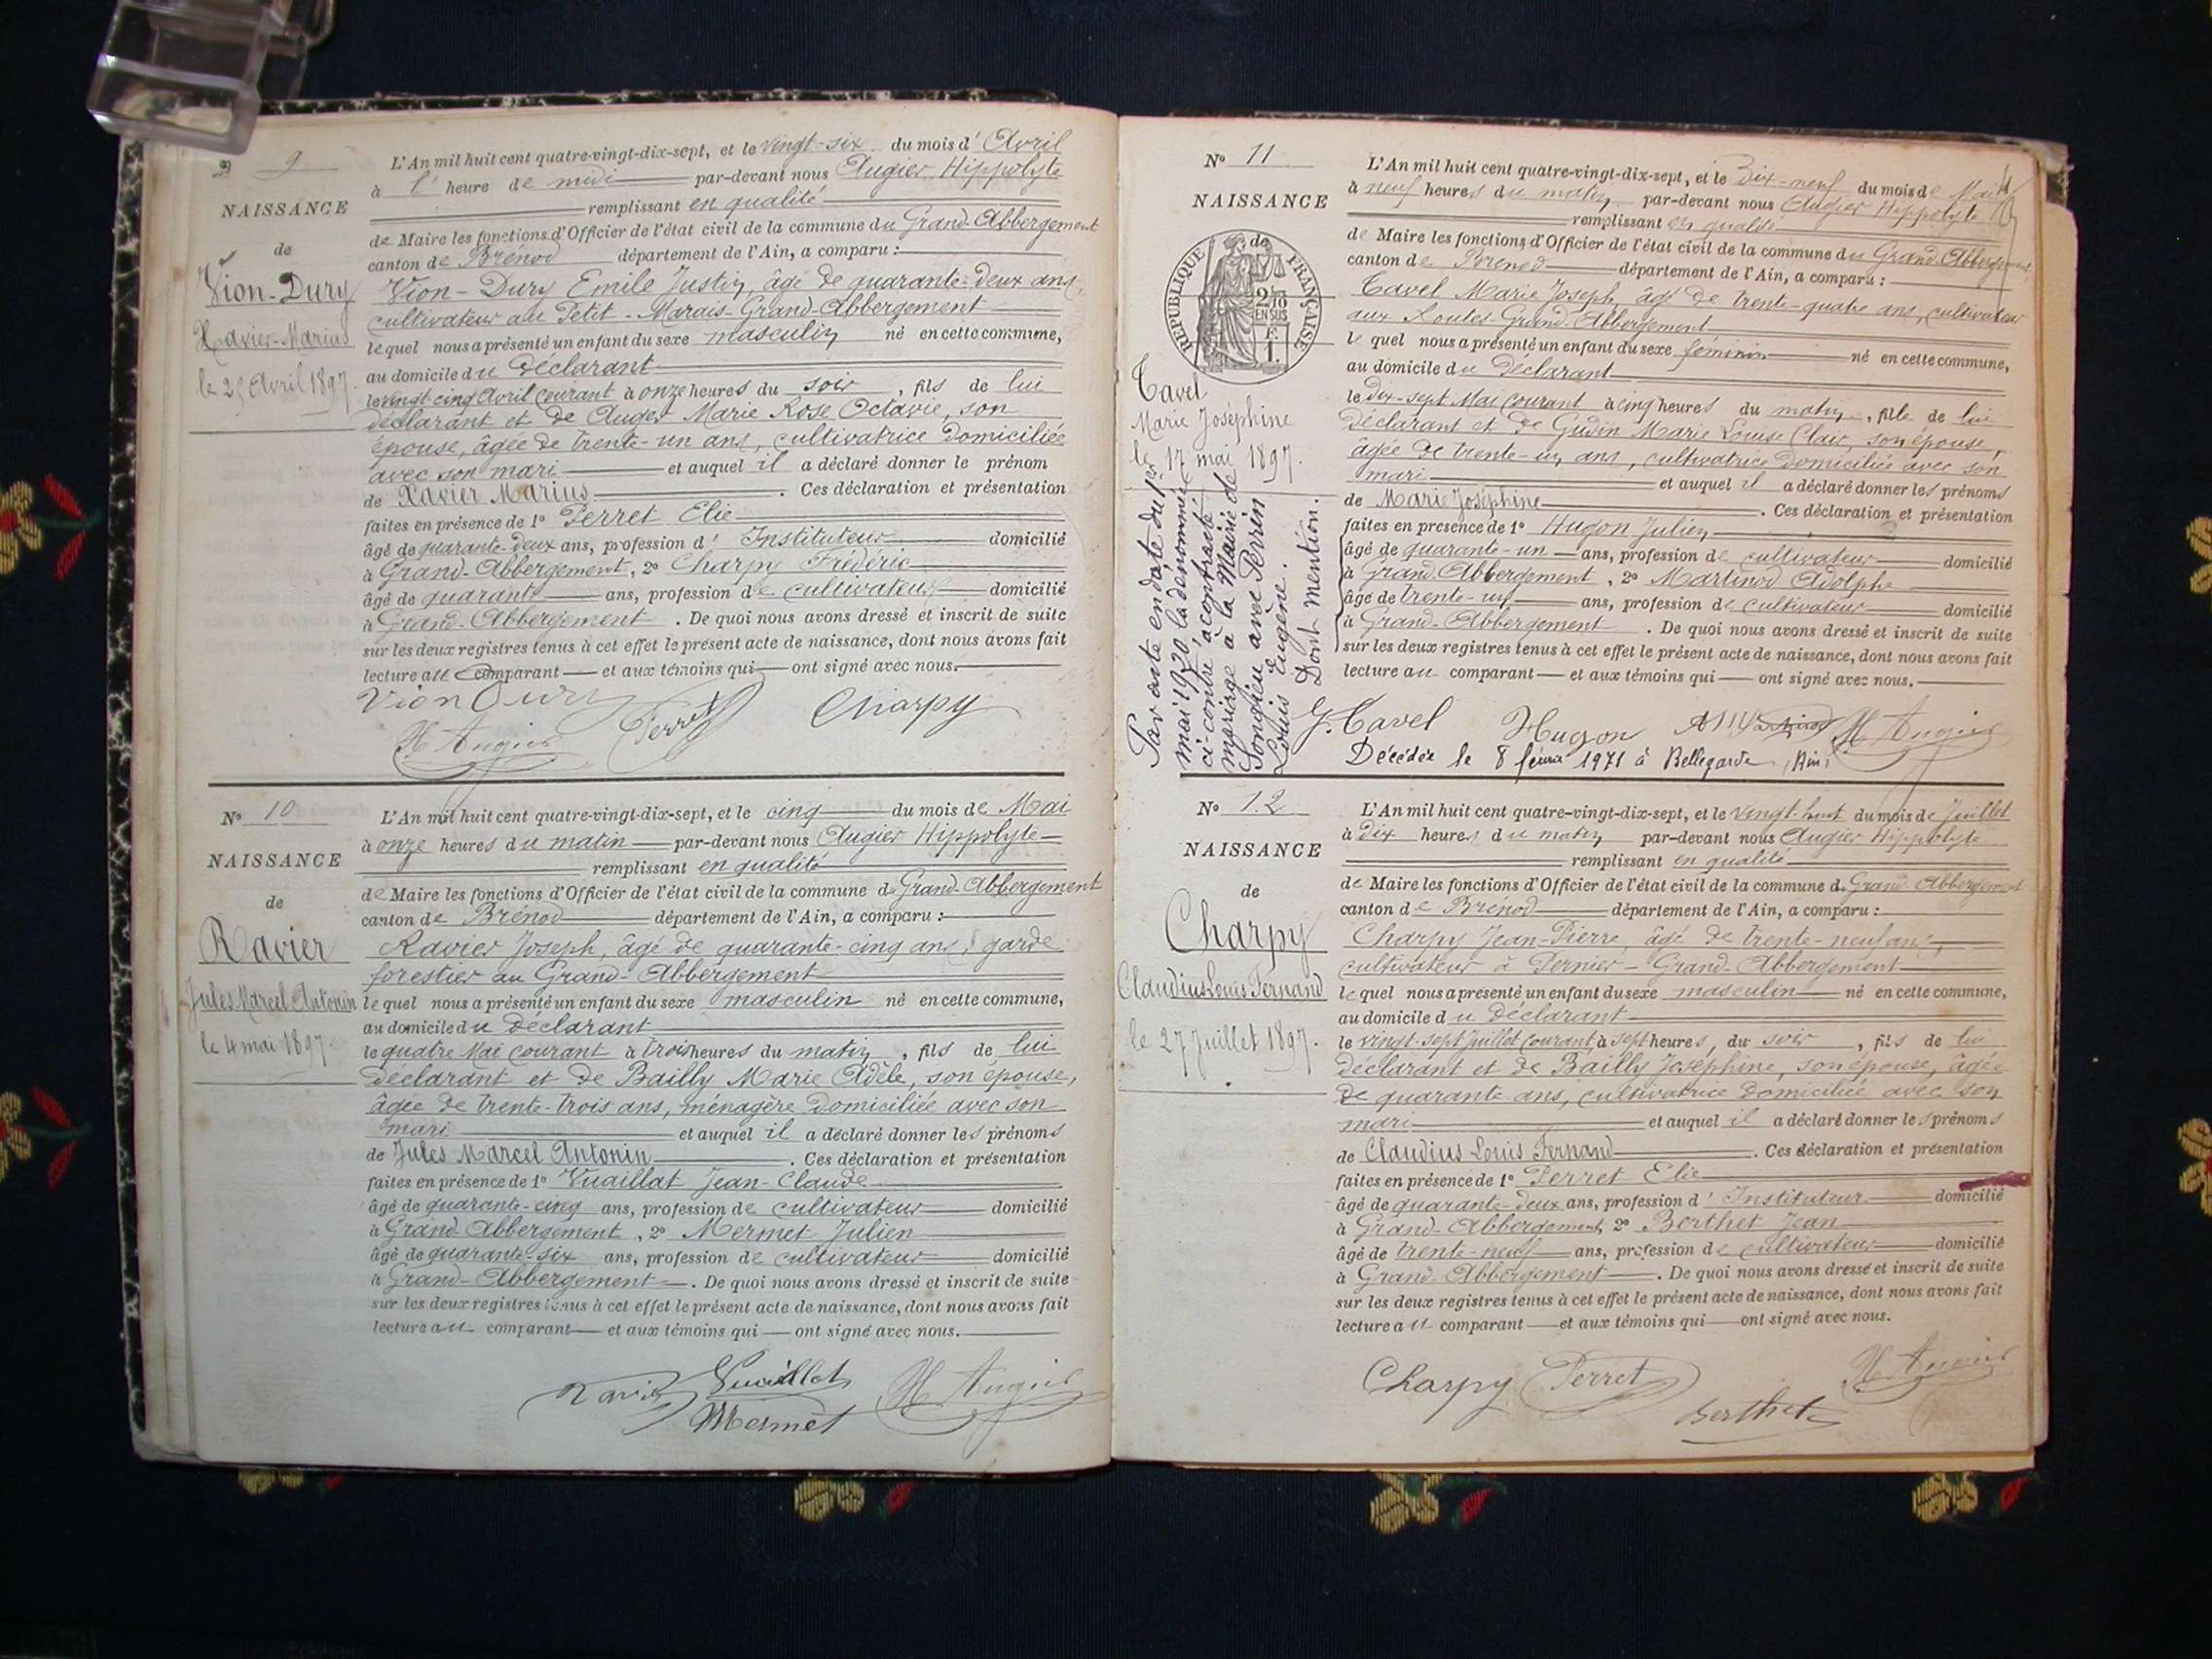 N° 9
NAISSANCE
de
Vion-Dury
Xavier-Marius
le 25 Avril 1897.
L'An mil huit cent quatre-vingt-dix-sept, et le vingt-six du mois d'Avril
à l' heure de midi par-devant nous Augier Hippolyte
remplissant en qualité
de Maire les fonctions d'Officier de l'état civil de la commune du Grand-Abbergement
canton de Brénod département de l'Ain, a comparu :
Vion-Dury Emile Justin, âgé de quarante-deux ans,
cultivateur au Petit-Marais-Grand-Abbergement
lequel nous a présenté un enfant du sexe masculin né en cette commune,
au domicile du déclarant
le vingt cinq Avril courant à onze heures du soir, fils de lui
déclarant et de Auger Marie Rose Octavie, son
épouse, âgée de trente-un ans, cultivatrice domiciliée
avec son mari et auquel il a déclaré donner le prénom
de Xavier Marius. Ces déclaration et présentation
faites en présence de 1° Perret Elie
âgé de quarante-deux ans, profession d'Instituteur domicilié
à Grand-Abbergement, 2° Charpy Frédéric
âgé de quarante ans, profession de cultivateur domicilié
à Grand-Abbergement. De quoi nous avons dressé et inscrit de suite
sur les deux registres tenus à cet effet le présent acte de naissance, dont nous avons fait
lecture au comparant et aux témoins qui ont signé avec nous.
Vion Dury Perret Charpy
H Augier
N° 10
NAISSANCE
de
Ravier
Jules Marcel Antonin
le 4 mai 1897.
L'An mil huit cent quatre-vingt-dix-sept, et le cinq du mois de Mai
à onze heures du matin par-devant nous Augier Hippolyte
remplissant en qualité
de Maire les fonctions d'Officier de l'état civil de la commune de Grand-Abbergement
canton de Brénod département de l'Ain, a comparu :
Ravier Joseph, âgé de quarante-cinq ans, garde
forestier au Grand-Abbergement
lequel nous a présenté un enfant du sexe masculin né en cette commune,
au domicile du déclarant
le quatre Mai courant à trois heures du matin, fils de lui
déclarant et de Bailly Marie Adèle, son épouse,
âgée de trente-trois ans, ménagère domiciliée avec son
mari et auquel il a déclaré donner les prénoms
de Jules Marcel Antonin. Ces déclaration et présentation
faites en présence de 1° Vuaillat Jean-Claude
âgé de quarante-cinq ans, profession de cultivateur domicilié
à Grand-Abbergement, 2° Mermet Julien
âgé de quarante-six ans, profession de cultivateur domicilié
à Grand-Abbergement. De quoi nous avons dressé et inscrit de suite
sur les deux registres tenus à cet effet le présent acte de naissance, dont nous avons fait
lecture au comparant et aux témoins qui ont signé avec nous.
Ravier Vuaillat H Augier
Mermet
N° 11
NAISSANCE
de
RÉPUBLIQUE FRANÇAISE
2/10
EN SUS
F.
1.
Tavel
Marie Joséphine
le 17 mai 1897.
Par acte en date du 1er
mai 1920 la dénommée
ci-contre a contracté
mariage à la Mairie de
Songieu avec Perrin
Louis Eugène.
Dont mention.
L'An mil huit cent quatre-vingt-dix-sept, et le dix-neuf du mois de Mai
à neuf heures du matin par-devant nous Augier Hippolyte
remplissant en qualité
de Maire les fonctions d'Officier de l'état civil de la commune du Grand-Abbergement
canton de Brénod département de l'Ain, a comparu :
Tavel Marie Joseph, âgé de trente-quatre ans, cultivateur
aux Routes-Grand-Abbergement
lequel nous a présenté un enfant du sexe féminin né en cette commune,
au domicile du déclarant
le dix-sept Mai courant à cinq heures du matin, fille de lui
déclarant et de Gudin Marie Louise Clair, son épouse,
âgée de trente-un ans, cultivatrice domiciliée avec son
mari et auquel il a déclaré donner les prénoms
de Marie Joséphine. Ces déclaration et présentation
faites en présence de 1° Hugon Julien
âgé de quarante-un ans, profession de cultivateur domicilié
à Grand-Abbergement, 2° Martinod Adolphe
âgé de trente-un ans, profession de cultivateur domicilié
à Grand-Abbergement. De quoi nous avons dressé et inscrit de suite
sur les deux registres tenus à cet effet le présent acte de naissance, dont nous avons fait
lecture au comparant et aux témoins qui ont signé avec nous.
J. Tavel Hugon A Martinod H Augier
Décédée le 8 février 1971 à Bellegarde (Ain)
N° 12
NAISSANCE
de
Charpy
Claudius Louis Fernand
le 27 Juillet 1897.
L'An mil huit cent quatre-vingt-dix-sept, et le vingt-huit du mois de Juillet
à dix heures du matin par-devant nous Augier Hippolyte
remplissant en qualité
de Maire les fonctions d'Officier de l'état civil de la commune de Grand-Abbergement
canton de Brénod département de l'Ain, a comparu :
Charpy Jean-Pierre, âgé de trente-neuf ans,
cultivateur à Pernier-Grand-Abbergement
lequel nous a présenté un enfant du sexe masculin né en cette commune,
au domicile du déclarant
le vingt-sept juillet courant à sept heures, du soir, fils de lui
déclarant et de Bailly Joséphine, son épouse, âgée
de quarante ans, cultivatrice domiciliée avec son
mari et auquel il a déclaré donner les prénoms
de Claudius Louis Fernand. Ces déclaration et présentation
faites en présence de 1° Perret Elie
âgé de quarante-deux ans, profession d'Instituteur domicilié
à Grand-Abbergement, 2° Berthet Jean
âgé de trente-neuf ans, profession de cultivateur domicilié
à Grand-Abbergement. De quoi nous avons dressé et inscrit de suite
sur les deux registres tenus à cet effet le présent acte de naissance, dont nous avons fait
lecture au comparant et aux témoins qui ont signé avec nous.
Charpy Perret H Augier
Berthet